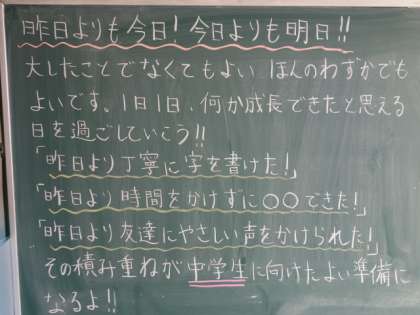 昨日よりも今日！今日よりも明日！！
大したことでなくてもよい ほんのわずかでも
よいです。1日1日、何か成長できたと思える
日を過ごしていこう！！
「昨日より丁寧に字を書けた！」
「昨日より時間をかけずに○○できた！」
「昨日より友達にやさしい声をかけられた！」
その積み重ねが中学生に向けたよい準備に
なるよ！！